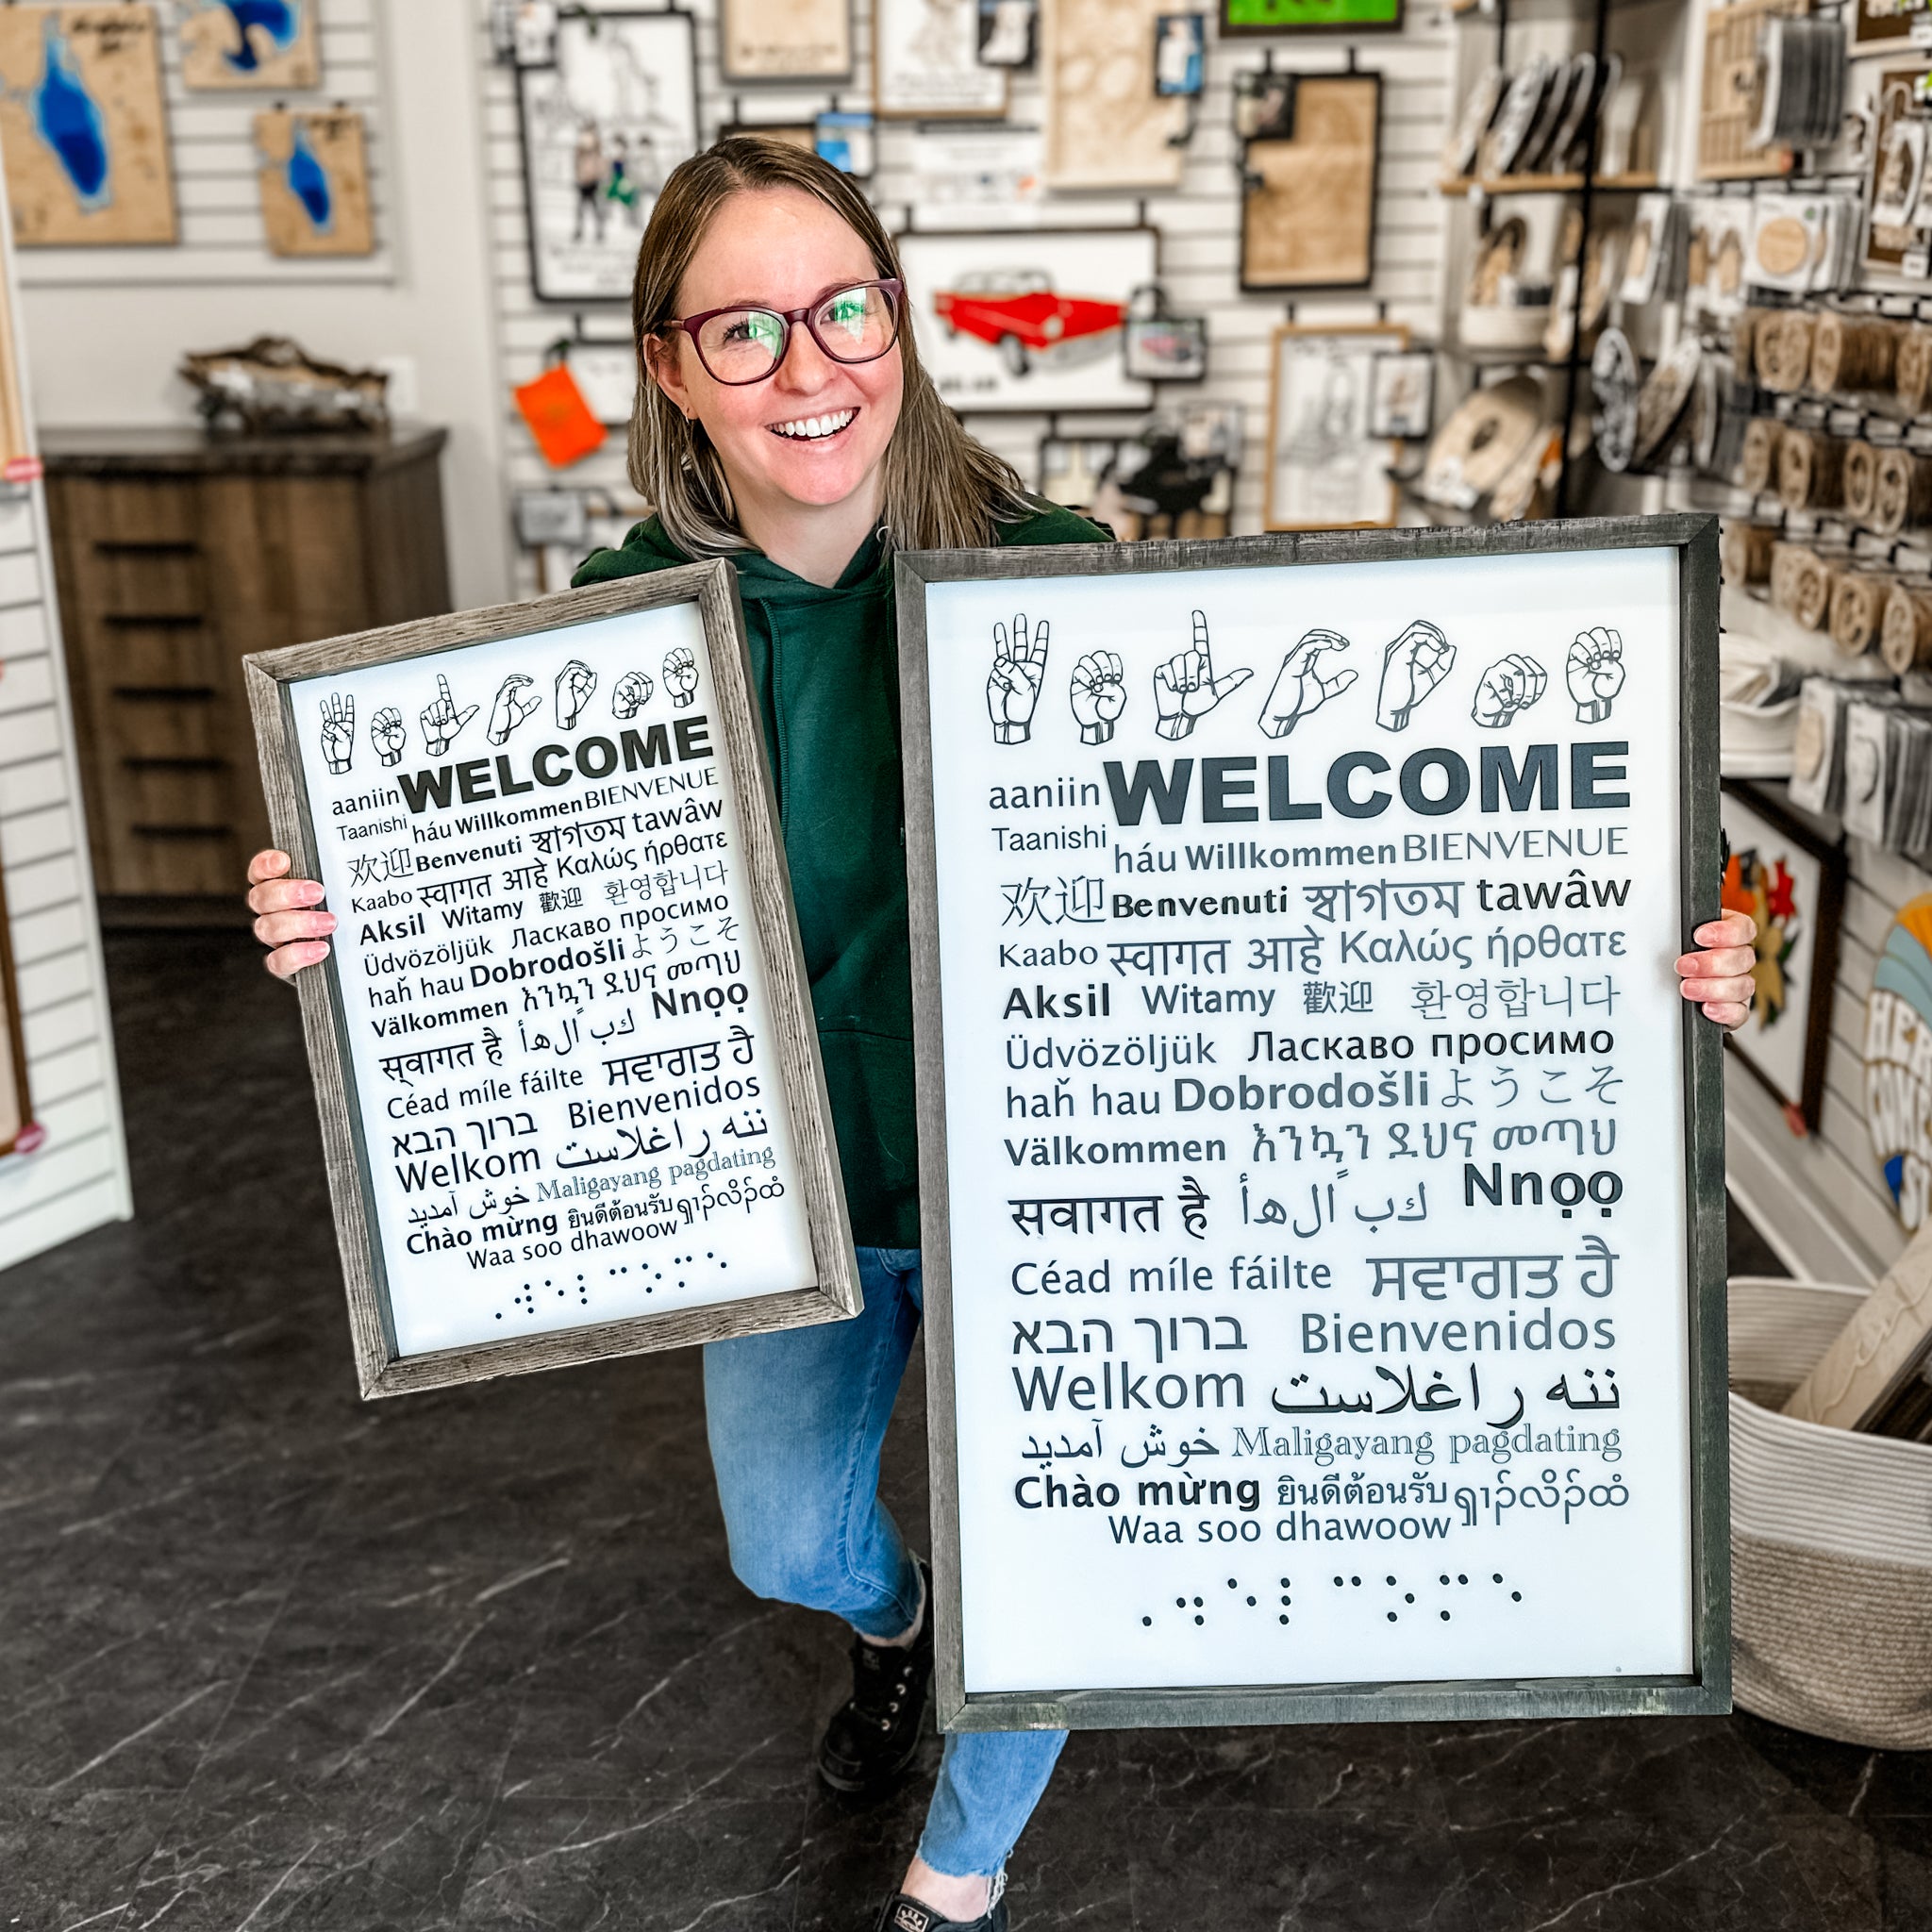 aaniin WELCOME
Taanishi háu Willkommen BIENVENUE
欢迎 Benvenuti স্বাগতম tawâw
Kaabo स्वागत आहे Καλώς ήρθατε
Aksil Witamy 歡迎 환영합니다
Üdvözöljük Ласкаво просимо
haȟ hau Dobrodošli ようこそ
Välkommen እንኳን ደህና መጣህ
स्वागत है كب ًالهأ Nnọọ
Céad míle fáilte ਸਵਾਗਤ ਹੈ
ברוך הבא Bienvenidos
Welkom ننه راغلاست
خوش آمدید Maligayang pagdating
Chào mừng ยินดีต้อนรับ
Waa soo dhawoow
⠠⠺⠑⠇⠉⠕⠍⠑
aaniin WELCOME
Taanishi háu Willkommen BIENVENUE
欢迎 Benvenuti স্বাগতম tawâw
Kaabo स्वागत आहे Καλώς ήρθατε
Aksil Witamy 歡迎 환영합니다
Üdvözöljük Ласкаво просимо
haȟ hau Dobrodošli ようこそ
Välkommen እንኳን ደህና መጣህ
स्वागत है كب ًالهأ Nnọọ
Céad míle fáilte ਸਵਾਗਤ ਹੈ
ברוך הבא Bienvenidos
Welkom ننه راغلاست
خوش آمدید Maligayang pagdating
Chào mừng ยินดีต้อนรับ
Waa soo dhawoow
⠠⠺⠑⠇⠉⠕⠍⠑